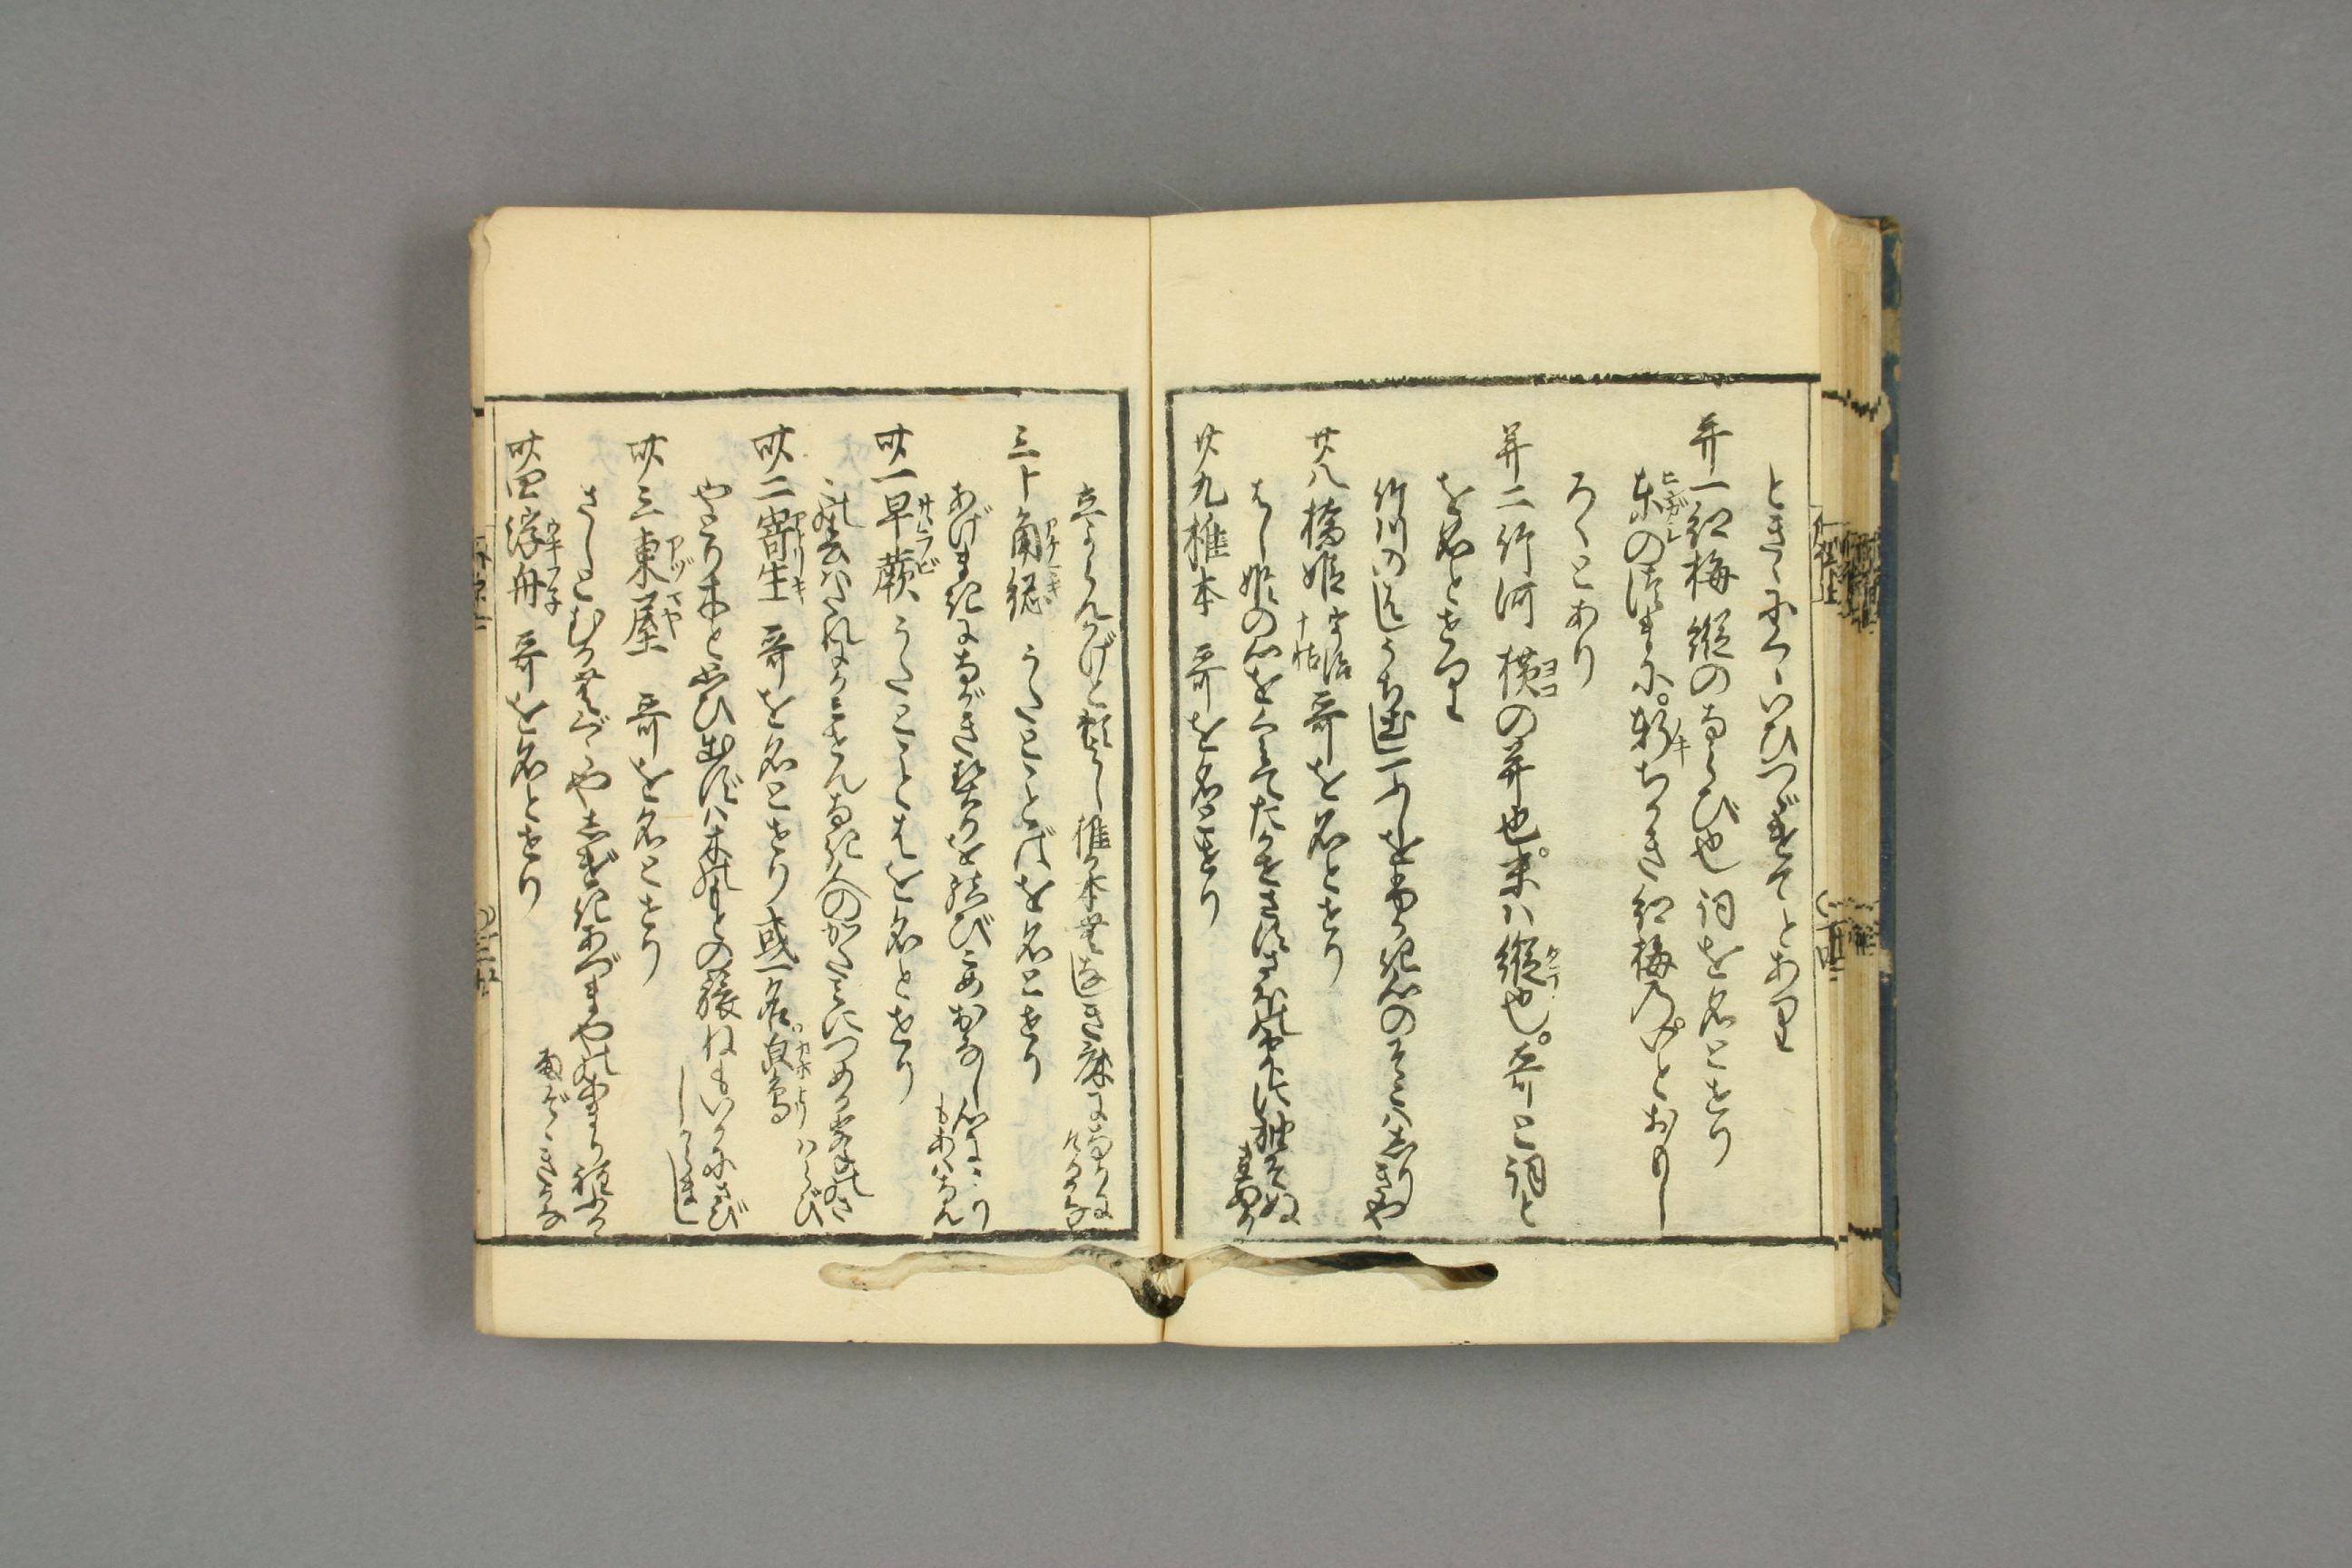 ときゝにくゝいひつゞけてとあり
并一紅梅 縦のならび也 詞を名とせり
東のつまに。軒ちかき紅梅の。いとおもし
ろくとあり
并二竹河 横の并也。実ハ縦也。哥と詞と
を名とせり
竹川のはしうち出し一ふしにふかき心のそこハしりきや
廿八橋姫 宇治十帖 哥を名とせり
はし姫の心をくみてたかせさすさほのしづくに袖ぞぬれぬる
廿九椎本 哥を名とせり
立よらんかげと頼みし椎が本むなしき床になりにけるかな
三十角総 うたとことばを名とせり
あげまきにながき契りを結びこめおなし心によりもあはなん
卅一早蕨 うたとことばを名とせり
此春ハたれにかみせんなき人のかたみにつめる峯のさわらび
卅二寄生 哥を名とせり 或一名
やどり木と思ひ出ずハ木のもとの旅ねもいかにさびしからまし
卅三東屋 哥を名とせり
さしとむるむぐらやしげきあづまやのあまり程ふる雨そゝきかな
卅四浮舟 哥を名とせり